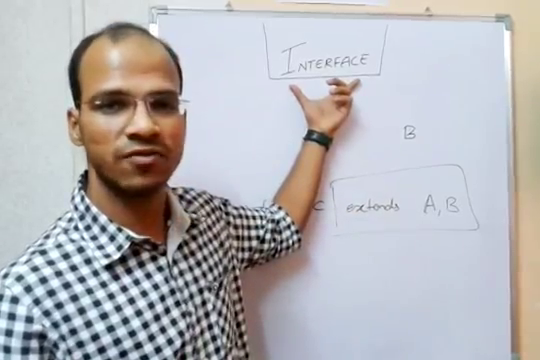 INTERFACE
B
C extends A, B